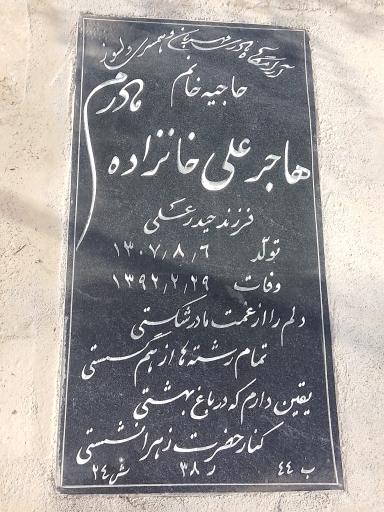 آرامگاه مادری مهربان و همسری دلسوز
حاجیه خانم
مادرم
هاجر علی خانزاده
فرزند حیدرعلی
تولد ۱۳۰۷/۸/۶
وفات ۱۳۹۲/۲/۲۹
دلم را از غمت مادر شکستی
تمام رشته ها از هم گسستی
یقین دارم که در باغ بهشتی
کنار حضرت زهرا نشستی
ب ۴۴ ر ۳۸ ش ۲۴